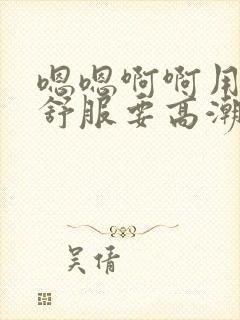 嗯嗯啊啊用
舒服要高潮
吴倩